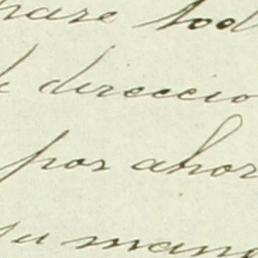 para tod
direccio
por ahor
su man